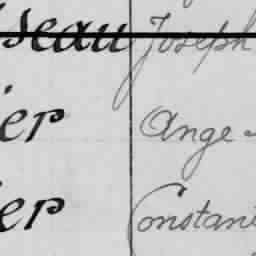 seau Joseph
ier Ange
ier Constan